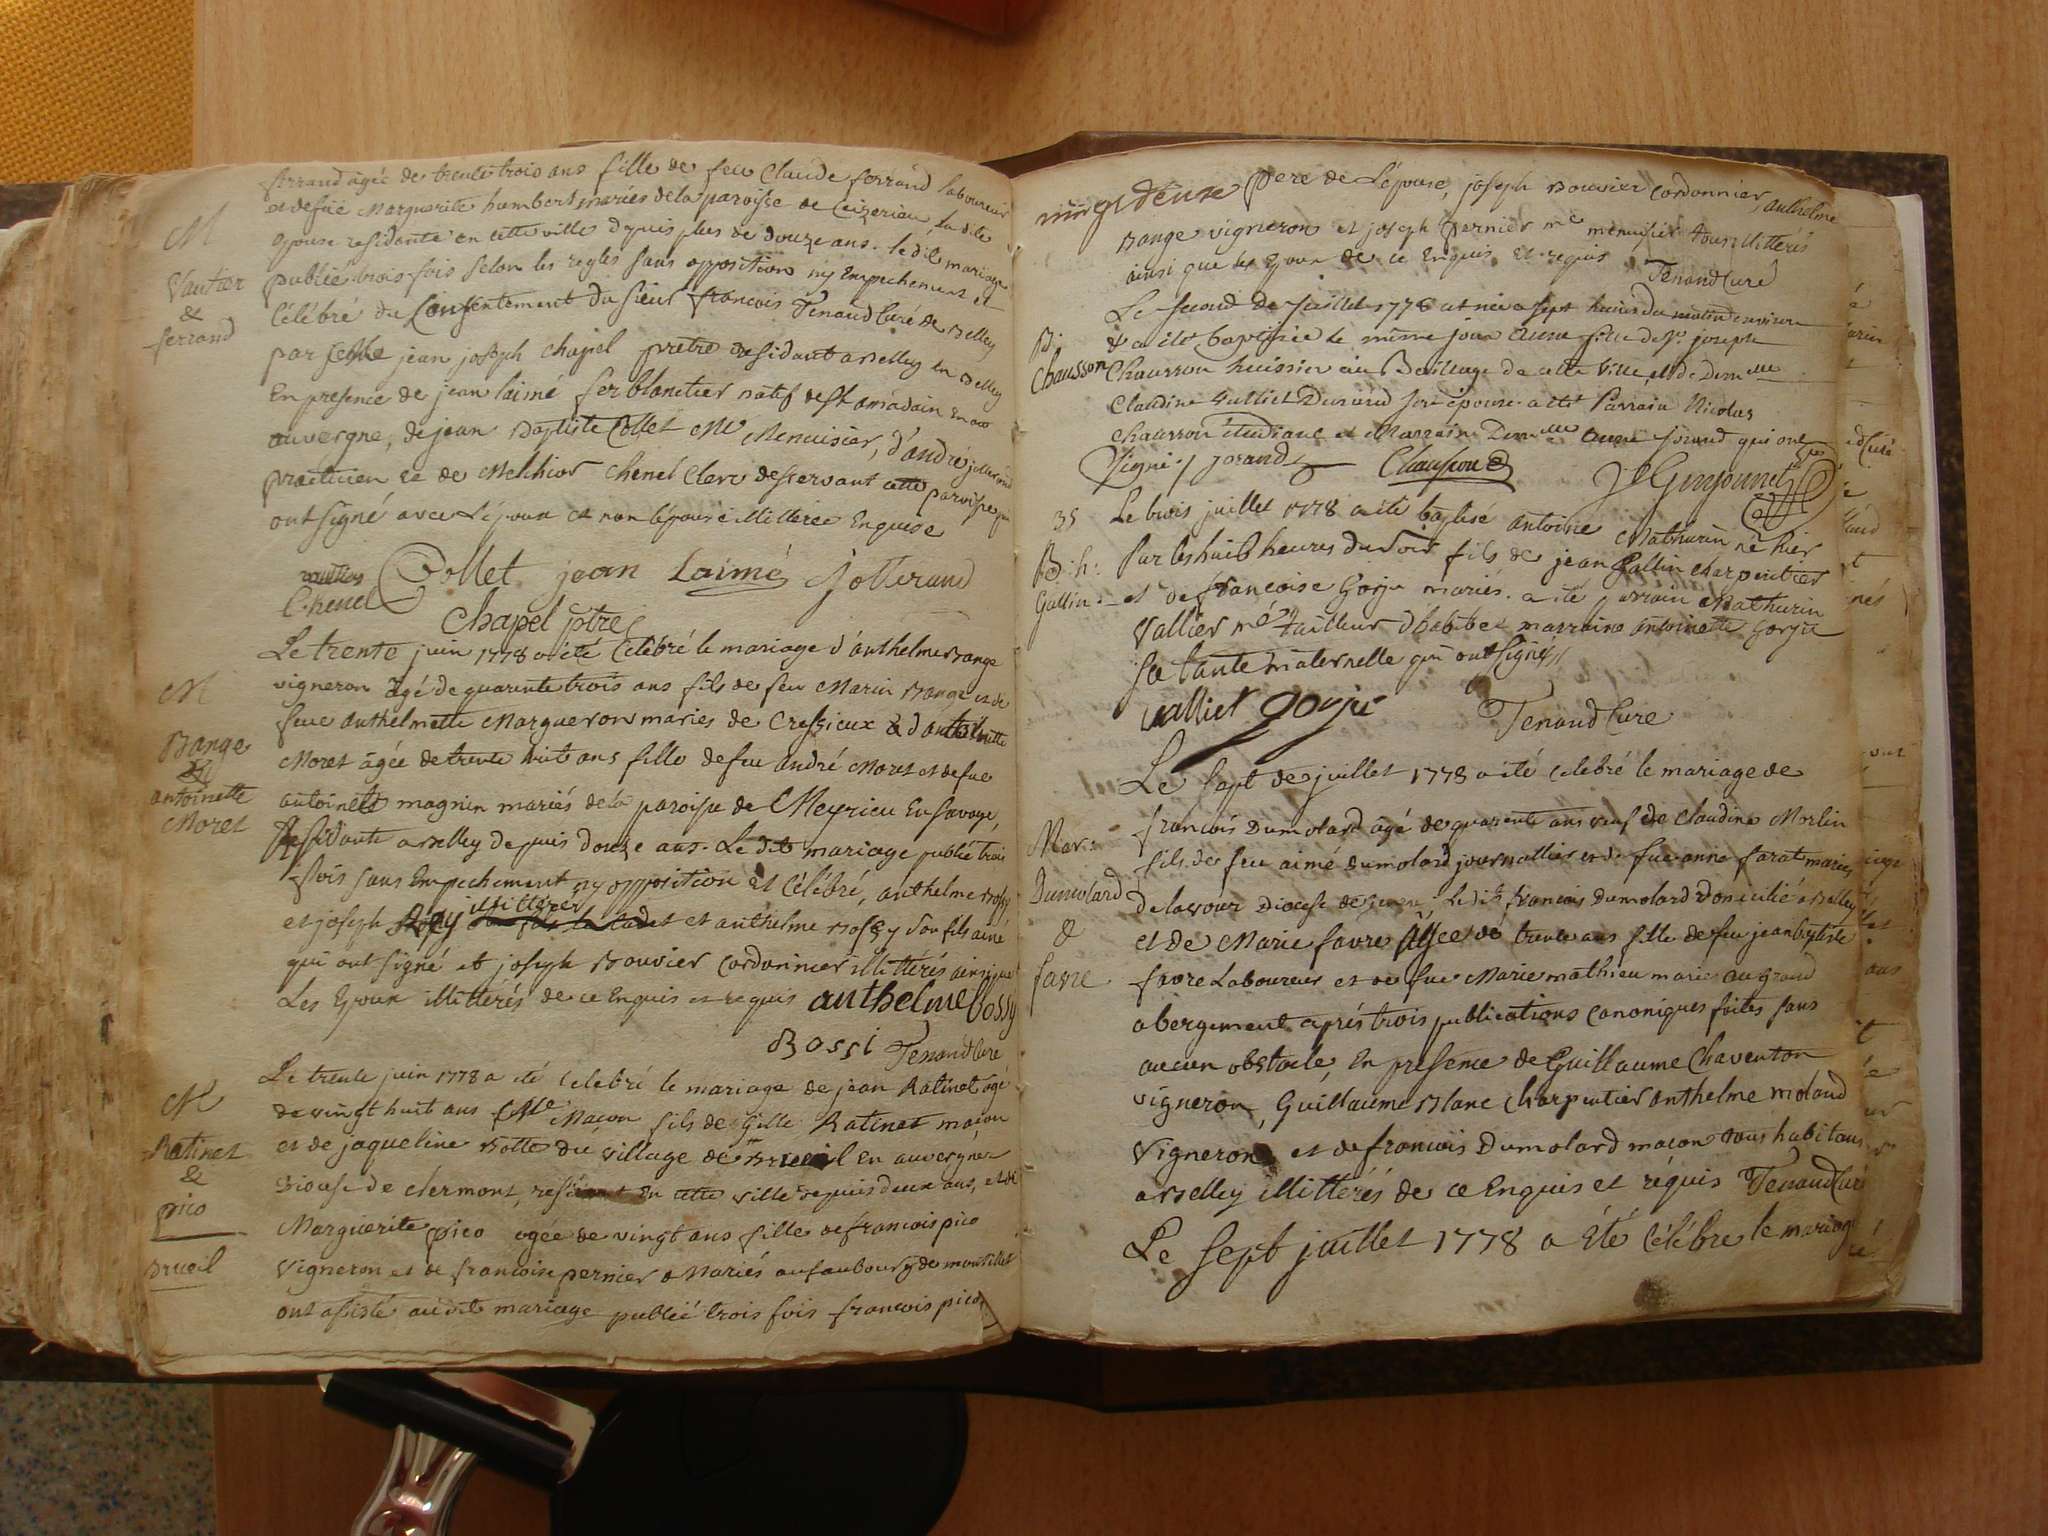 M
Vautier
&
ferrand
ferrand âgée de trente trois ans fille de feu Claude ferrand laboureur
et defüe Marguerite humbert mariés de la paroisse de Ceizerieu, la dite
epouse residante en cette ville depuis plus de douze ans. le dit mariage
publié trois fois selon les regles sans opposition ny Empechement et
Célébré du Consentement du sieur françois Tenand Curé de Belley
par jean joseph Chapel prêtre residant a Belley en Belley
En presence de jean laimé ferblantier natif de St amadain en
auvergne, de jean Baptiste Collet Me Menuisier, d'andre jotterand
praticien et de Melchior Chenel Clerc desservant cette paroisse qui
ont signé avec L'époux et non l'épouse illitérée Enquise
vautier Collet jean Laimé Jotterand
Chenel
Chapel ptre
M
Bange
&
antoinette
Moret
Le trente juin 1778 a été Célébré le mariage d'anthelme Bange
vigneron âgé de quarante trois ans fils de feu Marin Bange et de
feue anthelmette Margueron mariés de Cressieux & d'anthelmette
Moret âgée de trente huit ans fille de feu andré Moret et defue
antoinette magnin mariés de la paroisse de Meyrieu En Savoye,
Résidante a Belley depuis douze ans. Le dit mariage publié trois
fois sans Empechement ny opposition et Célébré, anthelme Bossy
illitérés
et joseph et anthelme Bossy son fils ainé
qui ont signé et joseph Bouvier Cordonnier illittérés ainsi que
Les Epoux illittérés de ce Enquis et requis anthelme bossy
Bossi Tenand Cure
M
Ratinet
&
pico
Brueil
Le trente juin 1778 a été Celebré le mariage de jean Ratinet agé
de vingt huit ans Me Maçon fils de Gille Ratinet maçon
et de jaqueline Botte du village de Brueil en auvergne
Diocese de Clermont, residant En cette ville depuis deux ans, et de
Marguerite pico agée de vingt ans fille de francois pico
Vigneron et de francoise pernier Mariés au faubourg de
ont assisté audit mariage publié trois fois francois pico
vingt deux
pere de L'épouse, joseph Bouvier Cordonnier, anthelme
Bange vigneron et joseph pernier me menuisier tous illittérés
ainsi que les Epoux de ce Enquis et requis Tenand Curé
B.
Chausson
Le second de Juillet 1778 est née a sept heures du matin environ
& a été baptisée le même jour anne fille de Sr joseph
Chausson huissier au Bailliage de cette Ville, et de Demlle
Claudine son épouse. a été Parrain Nicolas
Chausson étudiant et Marraine Demlle anne jorand qui ont
signé. / jorand Chausson
35
B. h.
Gallin
Le trois juillet 1778 a été baptisé antoine Mathurin né hier
sur les huit heures du soir fils de jean Gallin charpentier
et de francoise Gorju mariés. a été parrain Mathurin
Vallier me tailleur d'habit et marraine antoinette Gorju
sa tante maternelle qui ont signé
vallier gorju Tenand Cure
Mar.
Dumolard
&
favre
Le sept de juillet 1778 a été celebré le mariage de
francois Dumolard âgé de quarante ans veuf de Claudine Morlin
fils de feu aimé Dumolard journallier et de fue anne farat mariés
de lavour Diocese de Geneve; le dit francois Dumolard Domicilié a Belley
et de Marie favre agée de trente ans fille de feu jean baptiste
favre Laboureur et de fue Marie mathieu mariés au grand
abergement après trois publications canoniques faites sans
aucun obstacle, En presence de Guillaume Chaventon
vigneron, Guillaume Blanc charpentier anthelme moland
Vigneron et de francois Dumolard maçon tous habitans
a Belley illittérés de ce Enquis et réquis Tenand Curé
Le sept juillet 1778 a été Célébré le mariage